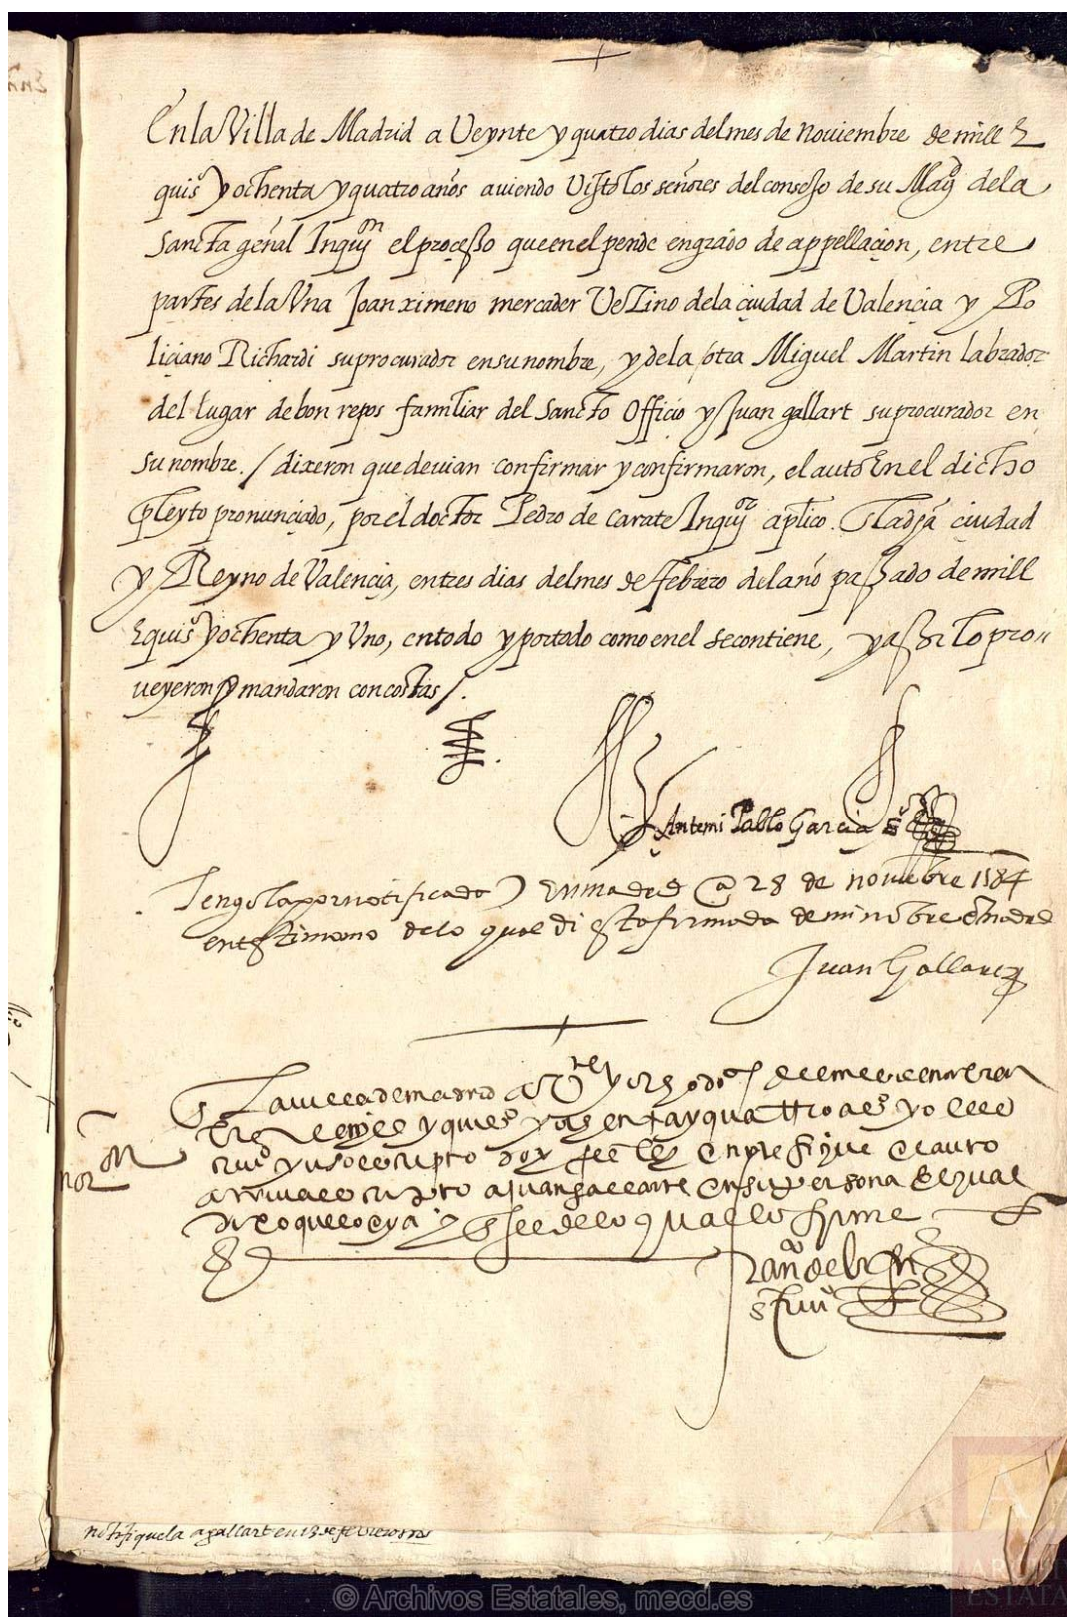 En la Villa de Madrid a Veynte y quatro dias del mes de noviembre de mill E
quis y ochenta y quatro años aviendo Visto los señores del consejo de su Magd de la
Sancta genal Inquion el proçesso que en el pende en grado de appellaçion, entre
partes de la Una Joan ximeno mercader Vezino de la çiudad de Valençia y Po
liçiano Richardi su procurador en su nombre, y de la otra Miguel Martin labrador
del lugar de bon repos familiar del Sancto Officio y Juan gallart su procurador en
su nombre. / dixeron que devian confirmar y confirmaron, el auto En el dicho
pleyto pronunçiado, por el doctor Pedro de Çarate Inquor aplico. çiudad
y Reyno de Valençia, en tres dias del mes de febrero del año passado de mill
E quis y ochenta y Uno, en todo y por todo como en el se contiene, y assi lo pro
veyeron y mandaron con costas /.
Antemi Pablo Garcia So
Tengola por notificada En madrid a 28 de noviembre 1584
en testimonio de lo qual di esta firmada de mi nobre en madrid
Juan Gallart
En la villa de madrid a
y quios y ochenta y quattro as yo el
doy fee que notifique el auto
arriva escripto a juan gallarte en su persona el qual
dixo que lo oya y dello qual lo firme
notifiquela a gallart en 13 de febrero
© Archivos Estatales, mecd.es